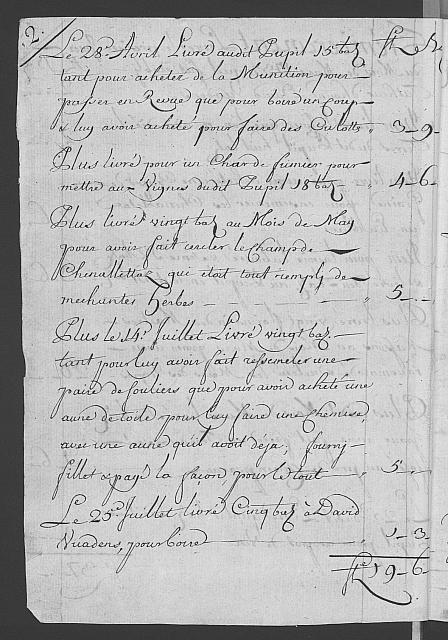 2.
Le 28e. Avril Livré audit Pupil 15 baz
tant pour acheter de la Munition pour
passer en Revue que pour boire un coup
& luy avoir acheté pour faire des Culotte " 3-9-
Plus livré pour un Char de fumier pour
mettre aux Vignes dudit Pupil 18 baz " 4-6-
Plus livré vingt baz au Mois de May
pour avoir fait cercler le champ de
Chenallettaz qui etoit tout remply de
mechantes herbes " 5-.-
Plus le 14e. Juillet Livré vingt baz
tant pour luy avoir fait ressemeler une
paire de souliers que pour avoir acheté une
aune de toile pour luy faire une Chemise,
avec une aune qu'il avoit deja; fourny
fillet & payé la façon pour le tout " 5-.-
Le 25e. Juillet livré Cinq baz à David
Vuadens, pour boire 1-3
19-6-